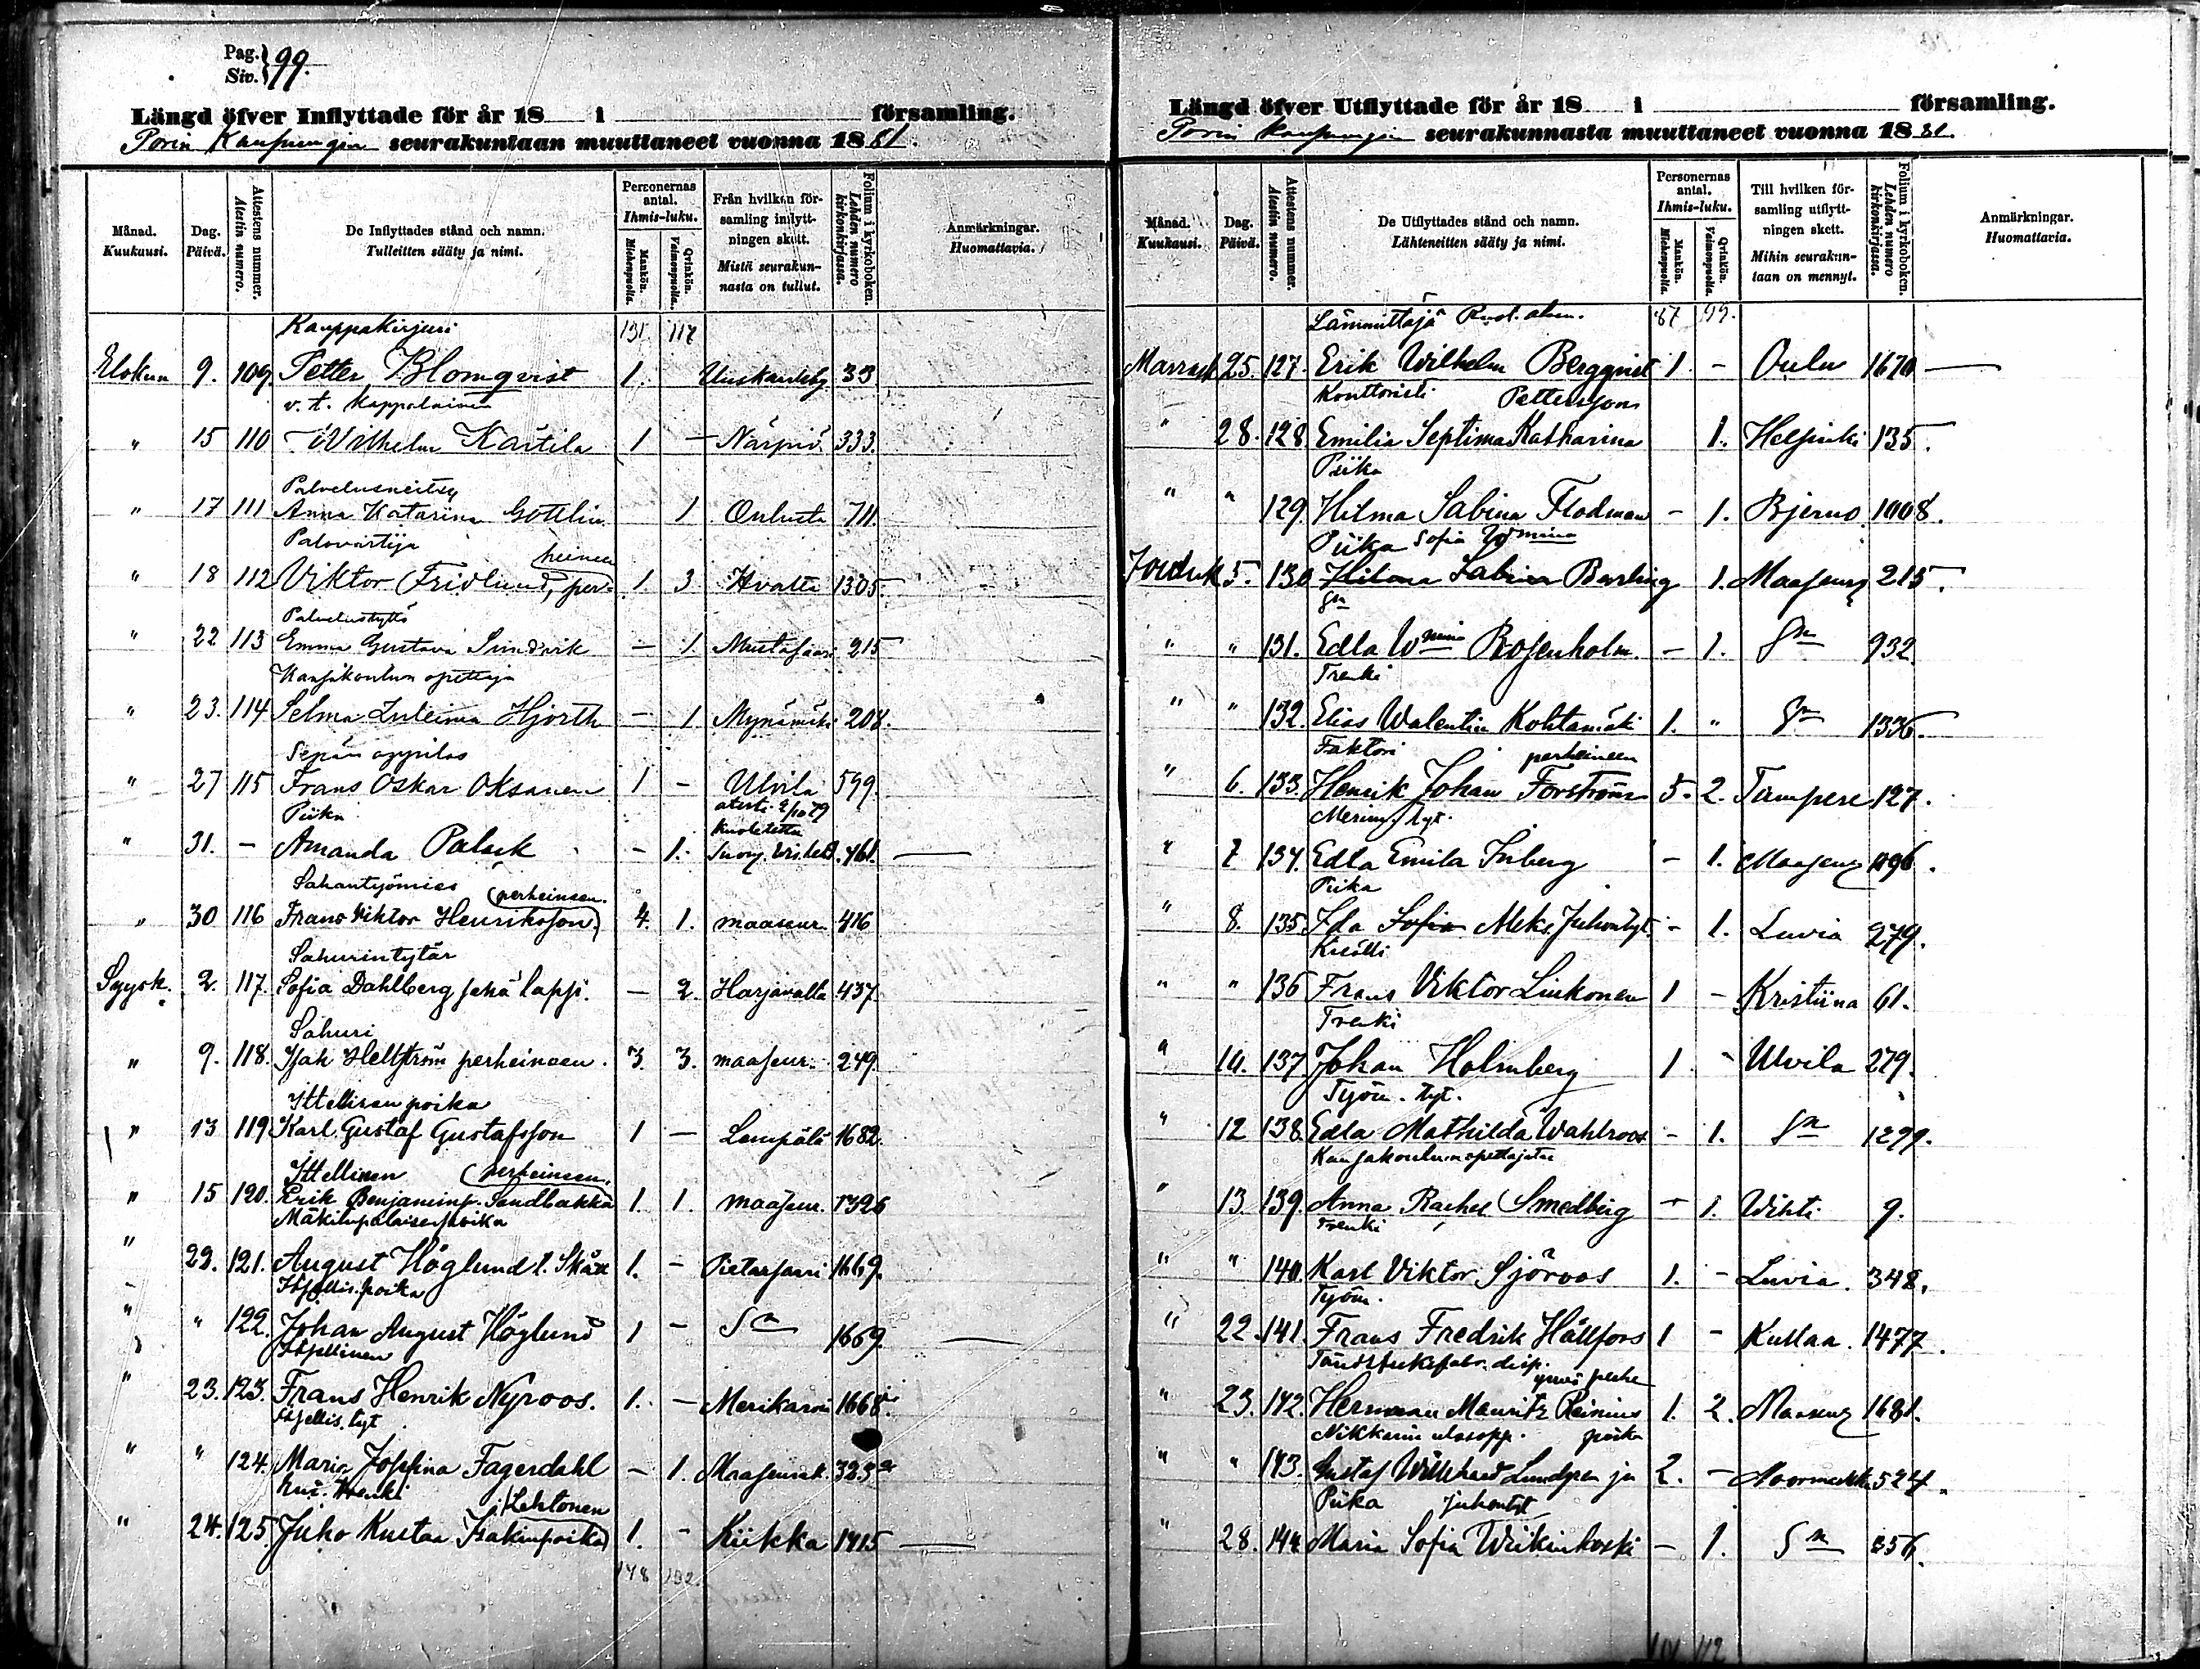 Pag.
Siv. 99.
Längd öfver Inflyttade för år 18 i församling.
Porin Kaupungin seurakuntaan muuttaneet vuonna 1881.
Månad. Kuukausi.
Dag. Päivä.
Attestens nummer. Atestin numero.
De Inflyttades stånd och namn. Tulleitten sääty ja nimi.
Personernas antal. Ihmis-luku.
Mankön. Miehenpuolia.
Qvinkön. Vaimonpuolia.
Från hvilken församling inflyttningen skett. Mistä seurakunnasta on tullut.
Folium i kyrkoboken. Lehden numero kirkonkirjassa.
Anmärkningar. Huomattavia.
Kauppakirjuri 131 117
Elokuu 9. 109. Petter Blomqvist 1. Uuskaarleby 33
v. t. Kappalainen
" 15 110 Wilhelm Kärtilä 1 – Närpiö 333.
Palvelusneitsy
" 17 111 Anna Katarina Gottlin 1 Oulusta 711.
Palovartija
" 18 112 Viktor Fridlund, perheineen 1. 3 Kvalta 1305.
Palvelustyttö
" 22 113 Emma Gustava Sundvik – 1 Mustasaari 215
Kansakoulun opettaja
" 23. 114 Selma Zuleima Hjorth – 1 Mynämäki 208.
Sepän oppilas
" 27 115 Frans Oskar Oksanen 1 – Ulvila 599.
Piika
" 31. – Amanda Palsck – 1. 461.
Sahantyömies
" 30 116 Frans Viktor Henriksson perheineen. 4. 1. maaseur. 416
Sahurintytär
Syysk. 2. 117. Sofia Dahlberg sekä lapsi. – 2. Harjavalta 437
Sahuri
" 9. 118. Isak Hellström perheineen. 3. 3. maaseur. 249.
Ittellisen poika
" 13 119 Karl Gustaf Gustafsson 1 – Lempälä 1682.
Ittellinen perheineen.
" 15 120. Erik Benjaminp. Sandbakka 1. 1. maaseur. 1326
Mäkitupalaisenpoika
" 22. 121. August Höglund l. Skåx 1. – Pietarsaari 1669.
Itsellis. poika
" " 122. Johan August Höglund 1 – Sn 1669.
Itsellinen
" 23. 123. Frans Henrik Nyroos. 1. – Merikarvia 1668.
Itsellis. tyt.
" " 124. Maria Josefina Fagerdahl – 1. Maaseurak. 323
Lehtonen
" 24. 125. Juho Kustaa Isakinpoika 1. – Kiikka 1415
148 132
Längd öfver Utflyttade för år 18 i församling.
Porin kaupungin seurakunnasta muuttaneet vuonna 1881.
Månad. Kuukausi.
Dag. Päivä.
Attestens nummer. Atestin numero.
De Utflyttades stånd och namn. Lähteneitten sääty ja nimi.
Personernas antal. Ihmis-luku.
Mankön. Miehenpuolia.
Qvinkön. Vaimonpuolia.
Till hvilken församling utflyttningen skett. Mihin seurakuntaan on mennyt.
Folium i kyrkoboken. Lehden numero kirkonkirjassa.
Anmärkningar. Huomattavia.
Lämmittäjä 87 99.
Marrask 25. 127. Erik Wilhelm Bergqvist 1. – Oulu 1670
Konttoristi Pettersson
" 28. 128. Emilia Septima Katharina 1. Helsinki 135.
Piika
" " 129. Hilma Sabina Flodman – 1. Bjerno 1008.
Piika Sofia Wmina
Jouluk 5. 130. Hilma Sabina Barling 1. Maaseur 215.
Sn
" " 131. Edla Wmina Rosenholm. – 1. Sn 932
Trenki
" " 132. Elias Walentin Kohtamäki 1. " Sn 1336.
Faktori perheineen
" 6. 133. Henrik Johan Forström 5. 2. Tampere 127.
Merim. tyt.
" 7 134. Edla Emila Inberg – 1. Maaseur 1096.
Piika
" 8. 135. Ida Sofia Aleks. Juhontyt. – 1. Luvia 279.
Kisälli
" " 136 Frans Viktor Liukonen 1 – Kristiina 61.
Trenki
" 10. 137. Johan Holmberg 1 – Ulvila 279.
Työm. tyt.
" 12 138. Edla Mathilda Wahlroos – 1. Sn 1299.
Kansakoulunopettajatar
" 13. 139. Anna Rachel Smedberg – 1. Wihti 9.
Trenki
" " 140. Karl Viktor Sjöroos 1. – Luvia. 348.
Työm.
" 22. 141. Frans Fredrik Hällfors 1 – Kullaa. 1477.
Tändsticksfabr. disp.
" 23. 142. Herman Mauritz Reinius 1. 2. Maaseur 1681.
Nikkarin poika
" " 143. Gustaf Willehard Lundgren ja 2. – Noormarkku 524.
Piika Juhontyt
" 28. 144. Maria Sofia Wiikinkoski – 1. Sn 356.
112